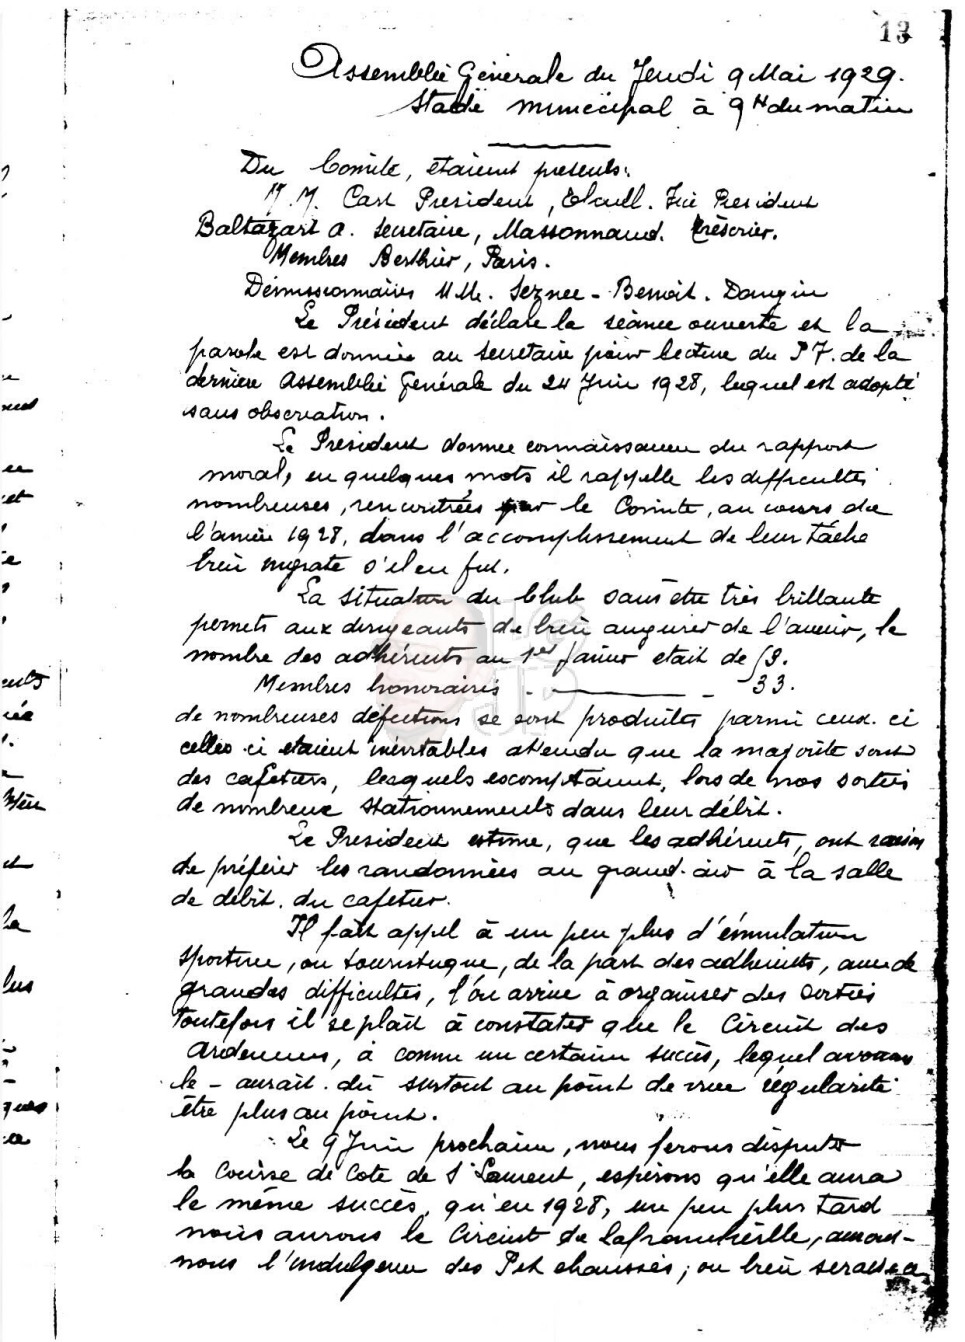 13
Assemblée Générale du Jeudi 9 Mai 1929.
Stade municipal à 9H du matin
Du Comité, étaient présents:
M.M. Cart Président, Vice President
Baltazart A. Secretaire, Massonnaud. trésorier.
Membres Berthier, Paris.
Démissionnaires M.M. Seznec - Benoit. Dangin
Le Président déclare la séance ouverte et la
parole est donnée au Secretaire pour lecture du P.V. de la
dernière Assemblée Générale du 24 Juin 1928, lequel est adopté
sans observation.
Le Président donne connaissance du rapport
moral, en quelques mots il rappelle les difficultés
nombreuses, rencontrées par le Comité, au cours de
l'année 1928, dans l'accomplissement de leur tâche
bien ingrate s'il en fut.
La situation du Club sans être très brillante
permets aux dirigeants de bien augurer de l'avenir, le
nombre des adhérents au 1er Janvier etait de 59.
Membres honoraires - 33.
de nombreuses défections se sont produites parmi ceux-ci
celles ci etaient inévitables attendu que la majorité sont
des cafetiers, lesquels escomptaient, lors de nos sorties
de nombreux stationnements dans leur débit.
Le President estime, que les adhérents, ont raison
de préférer les randonnées au grand-air à la salle
de débit. du cafetier.
Il fait appel à un peu plus d'émulation
sportive, ou touristique, de la part des adhérents, avec de
grandes difficultés, l'on arrive à organiser des sorties
toutefois il se plait à constater que le Circuit des
Ardennes, a connu un certain succès, lequel avouons
le - aurait du surtout au point de vue régularité
être plus au point.
Le 9 Juin prochain, nous ferons disputer
la Course de Cote de St Laurent, espérons qu'elle aura
le même succès, qu'en 1928, un peu plus tard
nous aurons le Circuit de Lafrancheville, aurons-
nous l'indulgence des Pts chaussées, ou bien sera